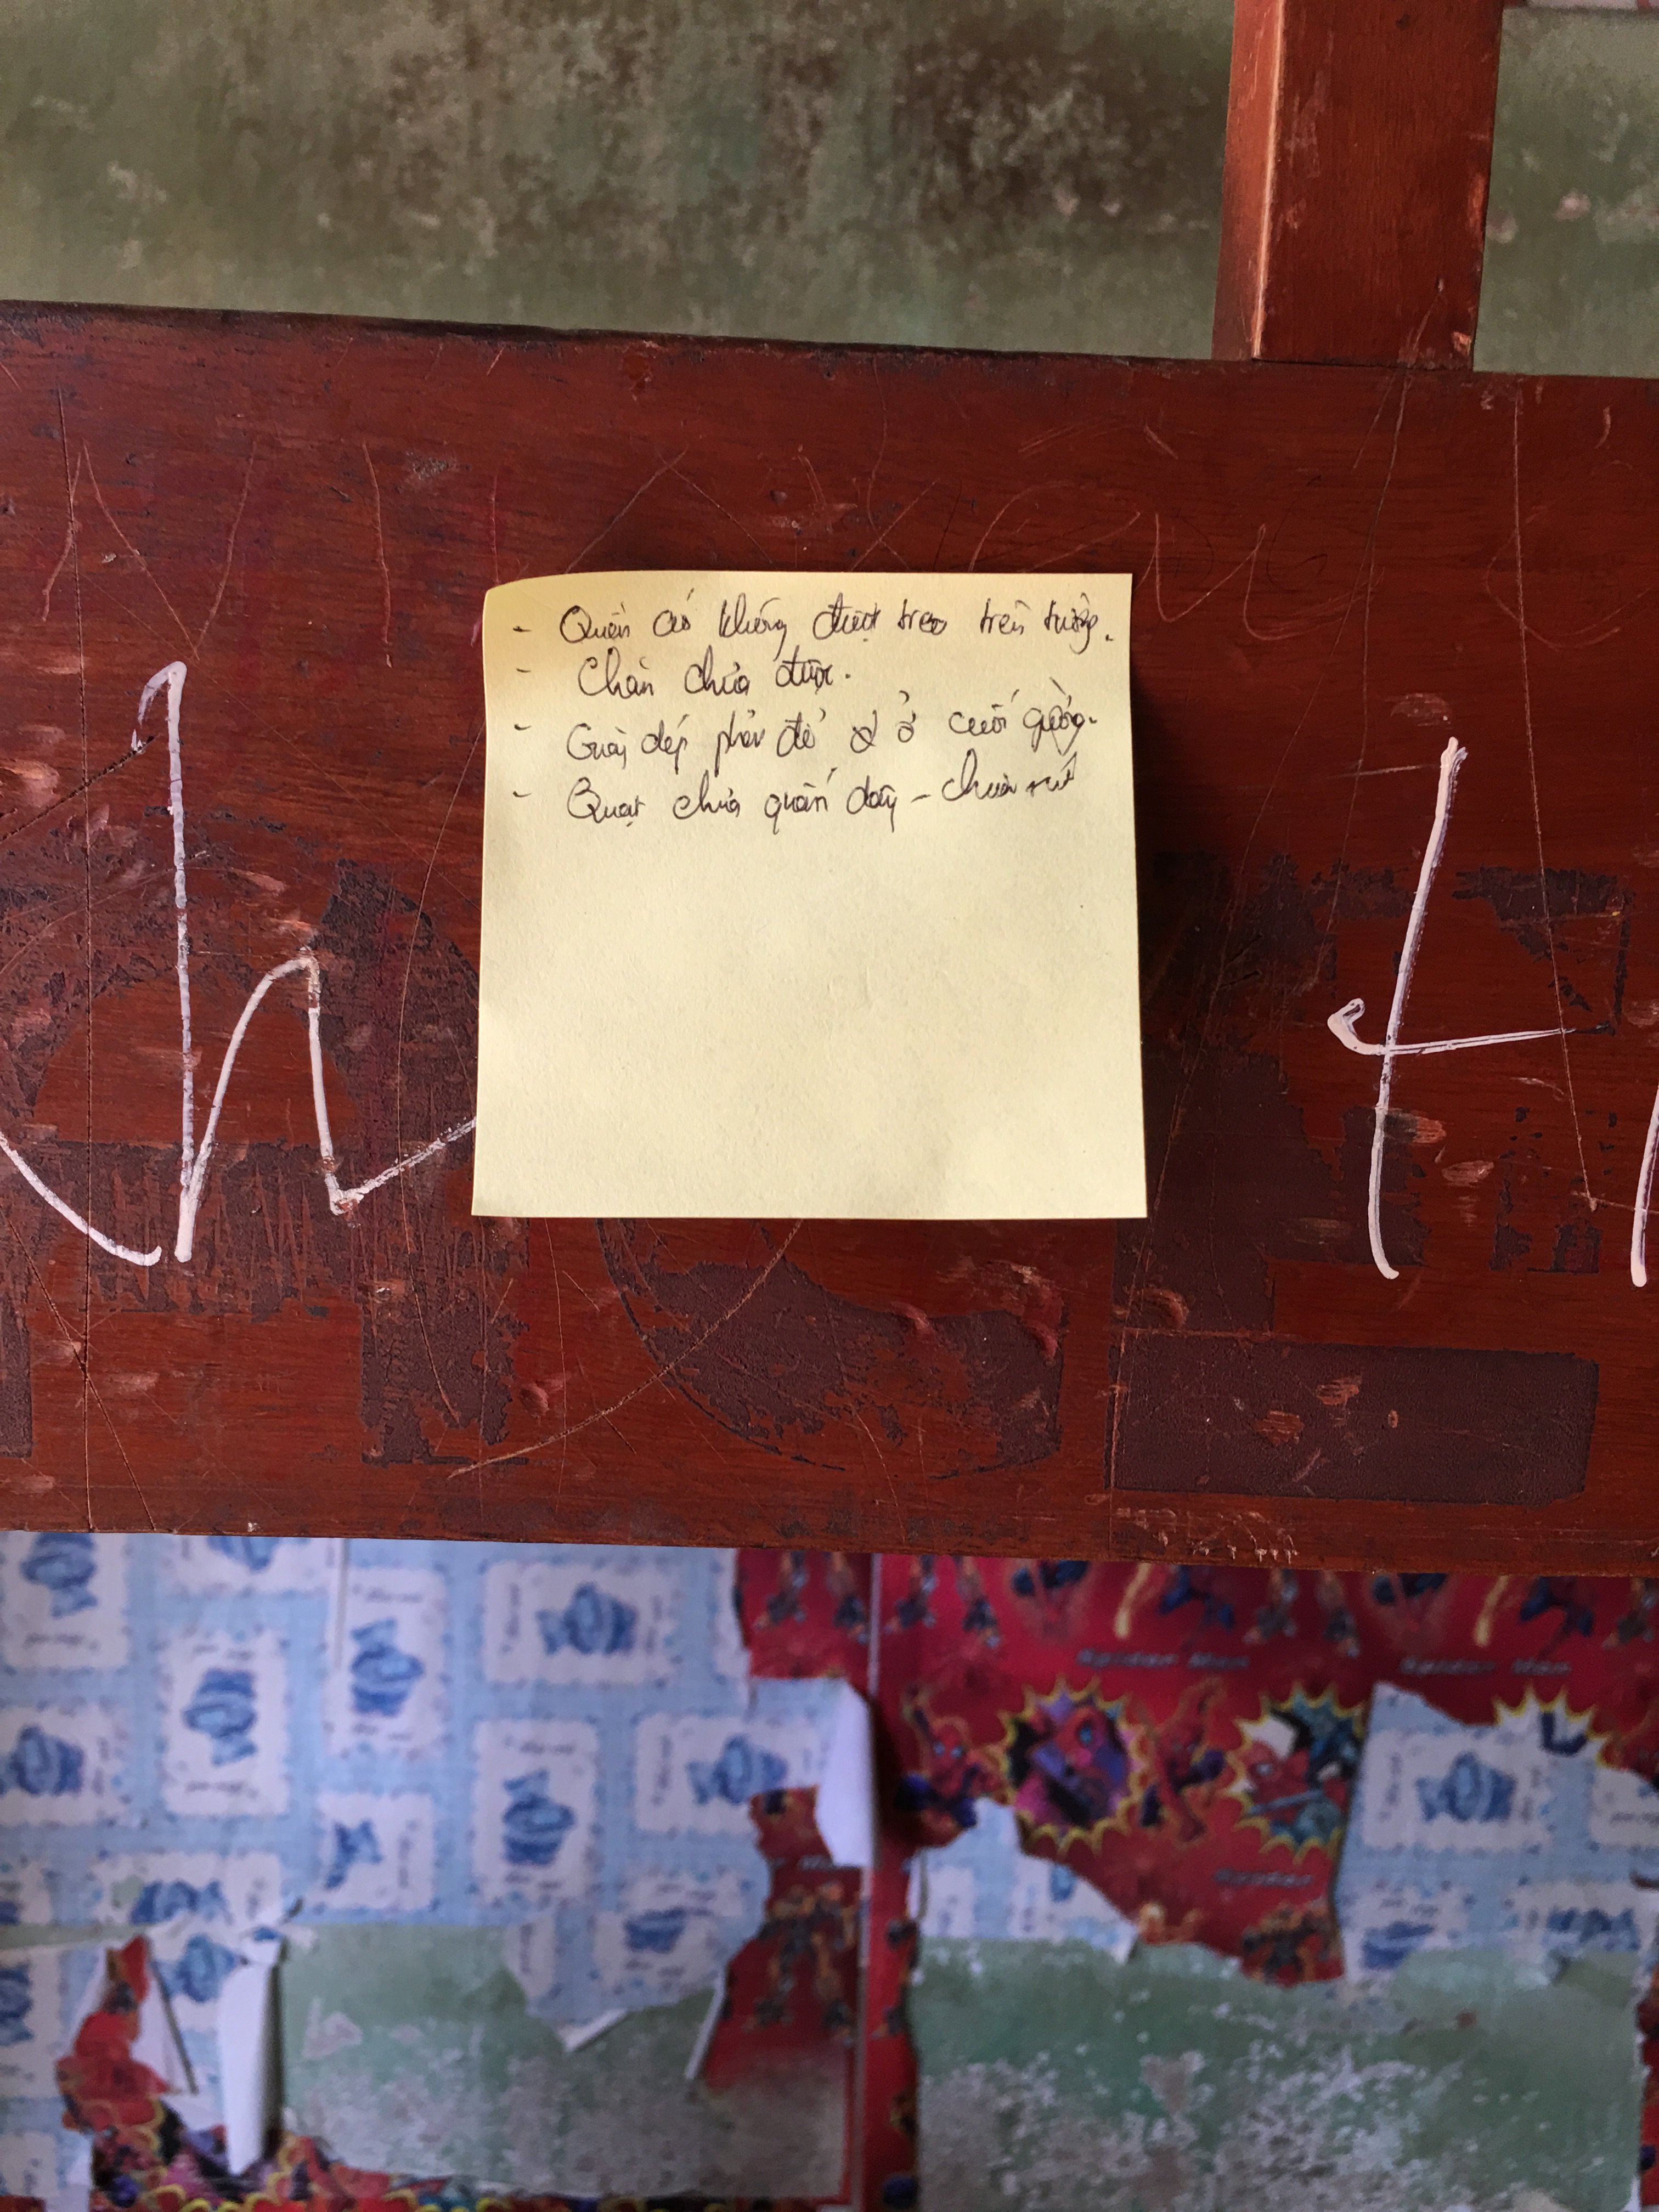 - Quần áo không được treo trên tường.
- Chăn chưa được.
- Giày dép phải để ở cuối giường.
- Quạt chưa quấn dây - chưa
h t
Spider Man Spider Man
Spider